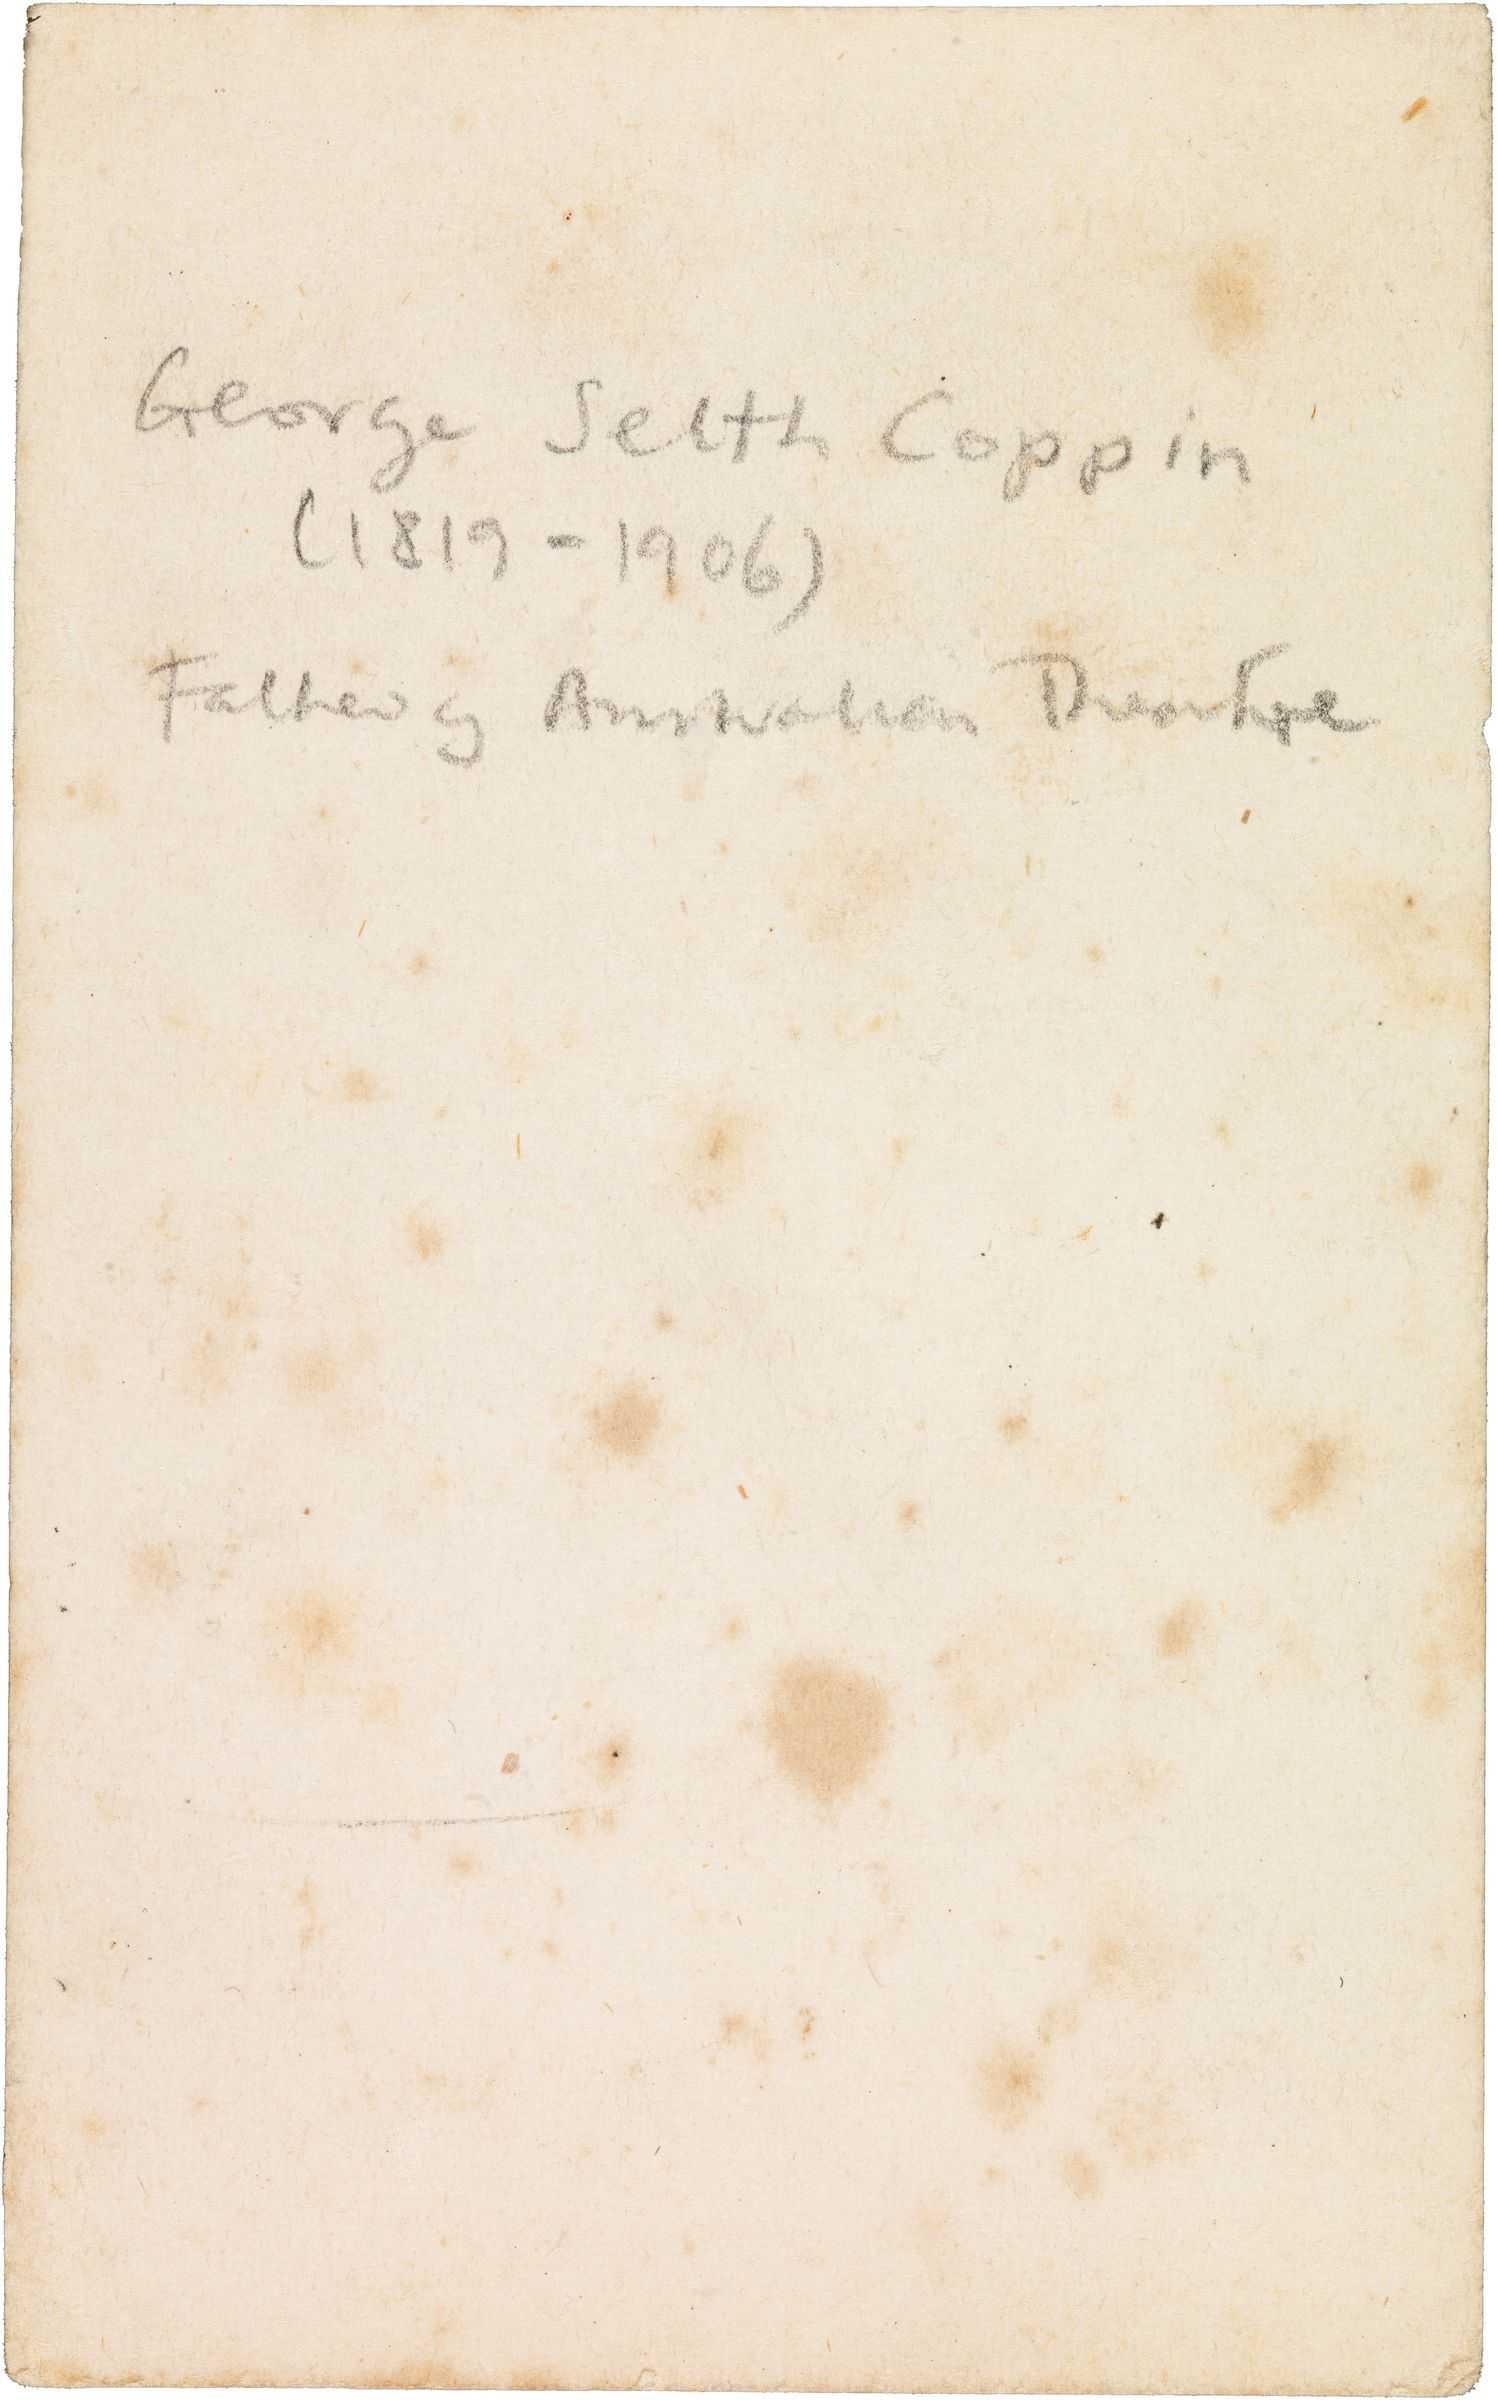 George Selth Coppin
(1819-1906)
Father of Australian Theatre